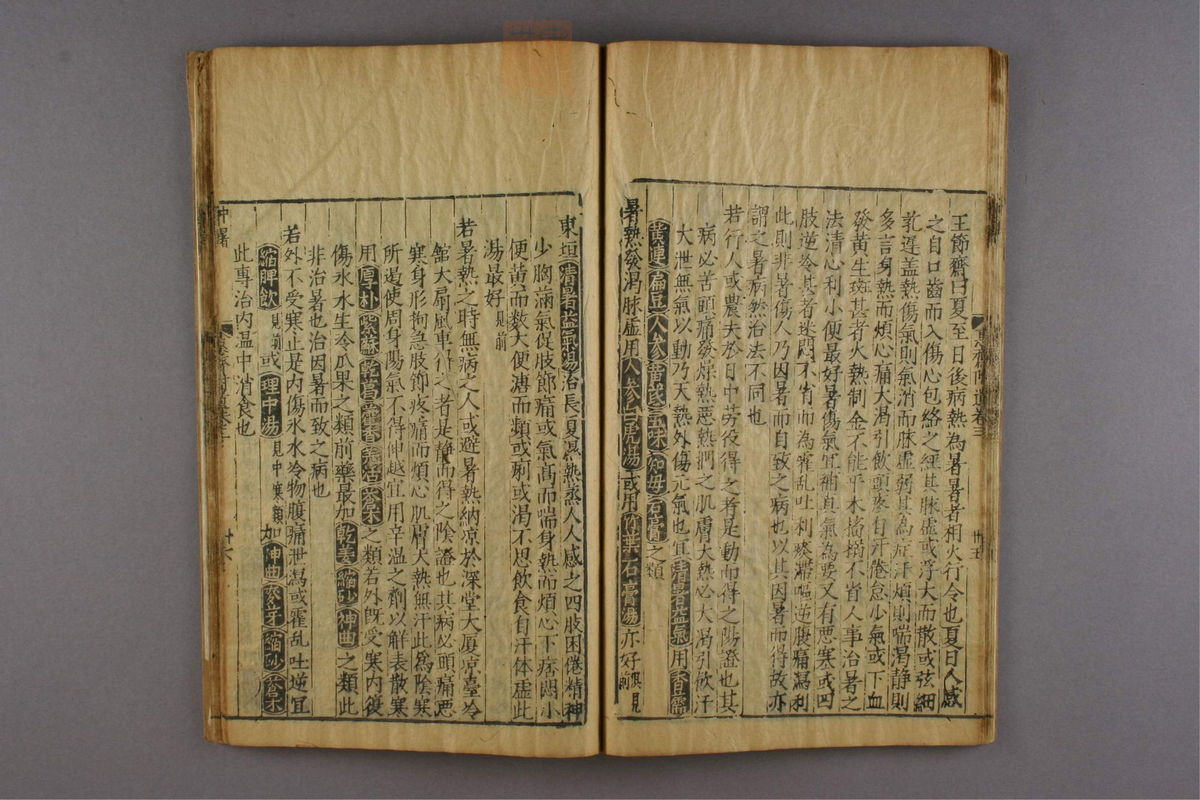 王節齋曰夏至日後病熱為暑暑者相火行令也夏日人感
之自口齒而入傷心包絡之經其脉虛或浮大而散或弦細
乳遲盖熱傷氣則氣消而脉虛弱其為症汗煩則喘渴静則
多言身熱而煩心痛大渴引飲頭疼自汗倦怠少氣或下血
發黃生斑甚者火熱制金不能平木搐搦不省人事治暑之
法清心利小便最好暑傷氣宜補真氣為要又有惡寒或四
肢逆冷甚者迷悶不省而為霍乱吐利痰滯嘔逆腹痛瀉利
此則非暑傷人乃因暑而自致之病也以其因暑而得故亦
謂之暑病然治法不同也
若行人或農夫於日中劳役得之者是動而得之陽證也其
病必苦頭痛發燥熱惡熱捫之肌膚大熱必大渴引飲汗
大泄無氣以動乃天熱外傷元氣也宜清暑益氣用香薷
黃連扁豆人參黄芪五味知母石膏之類
暑熱發渴脉虛用人參白虎湯或用竹葉石膏湯亦好俱見前
卅五
東垣清暑益氣湯治長夏濕熱蒸人人感之四肢困倦精神
少胸滿氣促肢節痛或氣高而喘身熱而煩心下痞悶小
便黃而数大便溏而頻或痢或渴不思飲食自汗体虛此
湯最好見前
若暑熱之時無病之人或避暑熱納凉於深堂大厦凉臺冷
館大扇風車得之者是静而得之陰證也其病必頭痛惡
寒身形拘急肢節疼痛而煩心肌膚大熱無汗此爲陰寒
所遏使周身陽氣不得伸越宜用辛温之劑以解表散寒
用厚朴紫蘇乾葛藿香羌活蒼朮之類若外既受寒内復
傷氷水生冷瓜果之類前藥最加乾姜縮砂神曲之類此
非治暑也治因暑而致之病也
若外不受寒止是内傷氷水冷物腹痛泄瀉或霍乱吐逆宜
縮脾飲見類或理中湯見中寒類加神曲麥芽縮砂蒼朮
此專治内温中消食也
中暑
卅六